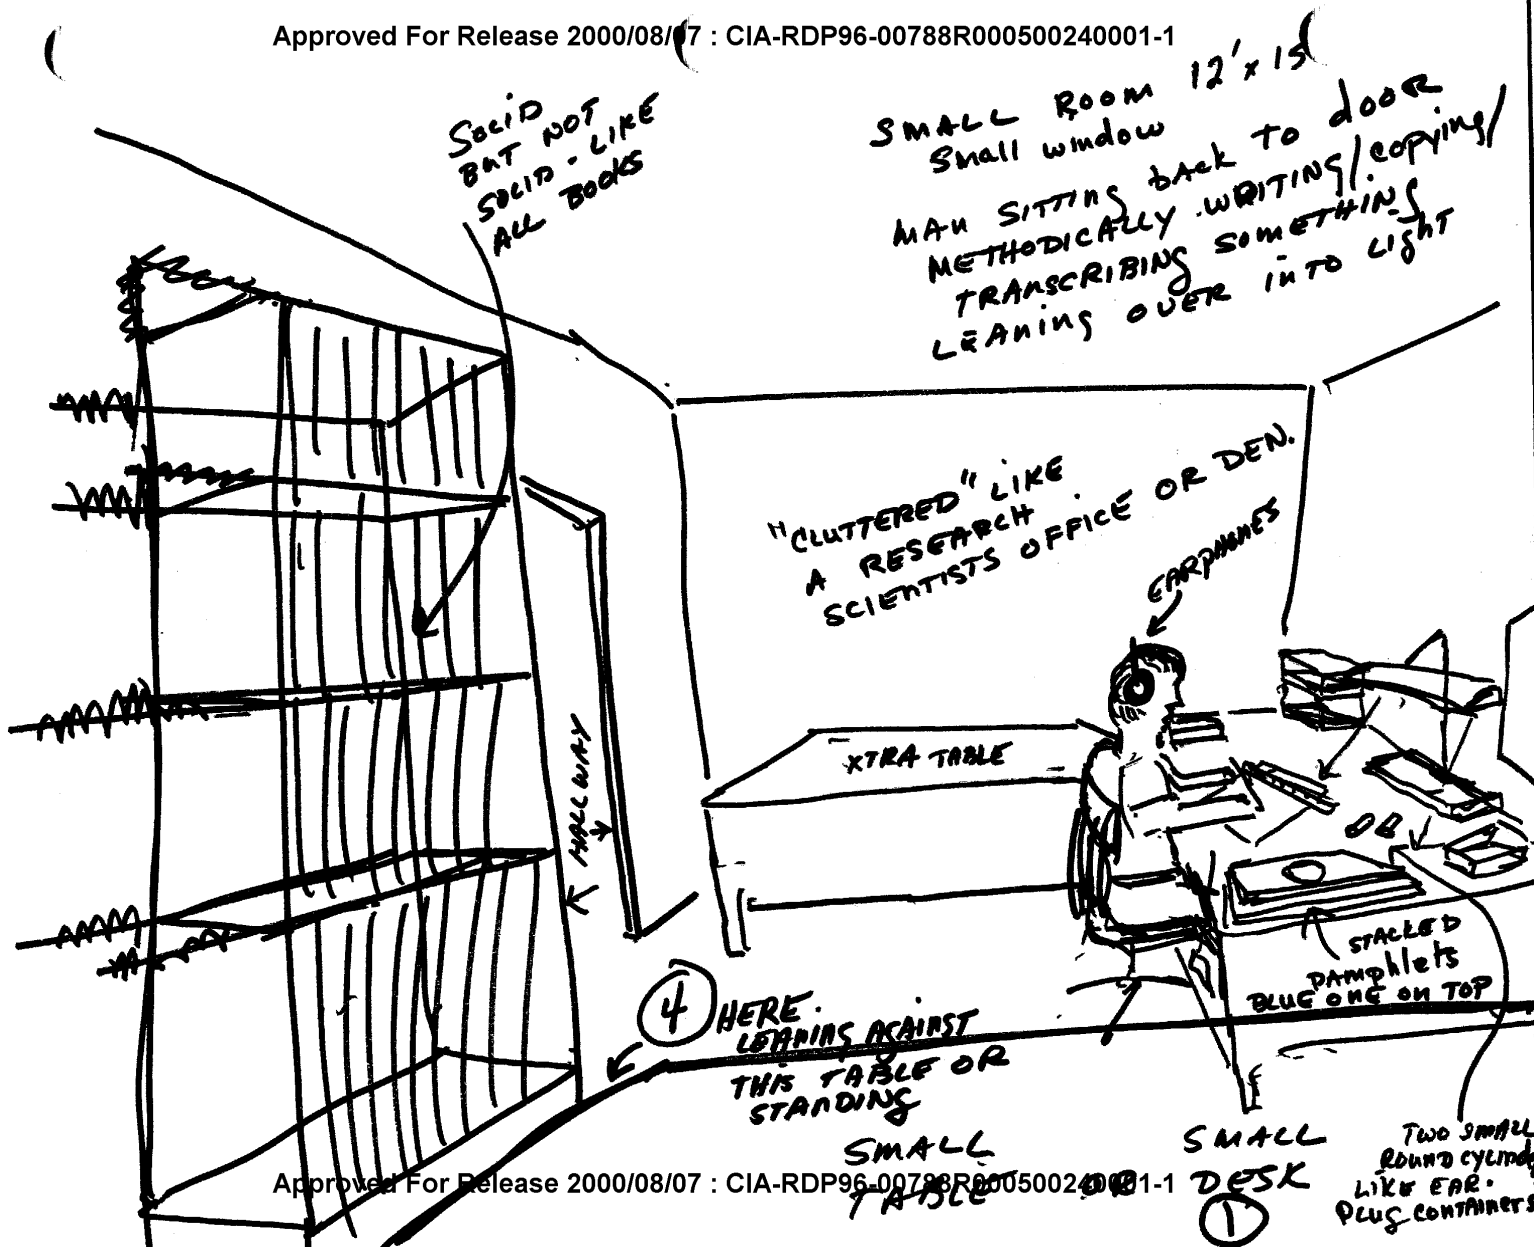 Approved For Release 2000/08/07 : CIA-RDP96-00788R000500240001-1
SOLID
BUT NOT
SOLID - LIKE
ALL BOOKS
SMALL ROOM 12'x 15
Small window
MAN SITTING bAck TO dOOR
METHODICALLY WRITING/copying/
TRANSCRIBING SOMETHING
LEANING OVER INTO LIGHT
"CLUTTERED" LIKE
A RESEARCH
SCIENTISTS OFFICE OR DEN.
EARPHONES
XTRA TABLE
HALLWAY
STACKED
PAMPhlets
BLUE ONE ON TOP
4 HERE.
LEANING AGAINST
THIS TABLE OR
STANDING
SMALL
TABLE OR
SMALL
DESK
1
TWO SMALL
ROUND CYLIND
LIKE EAR.
PLUG CONTAINERS
Approved For Release 2000/08/07 : CIA-RDP96-00788R000500240001-1